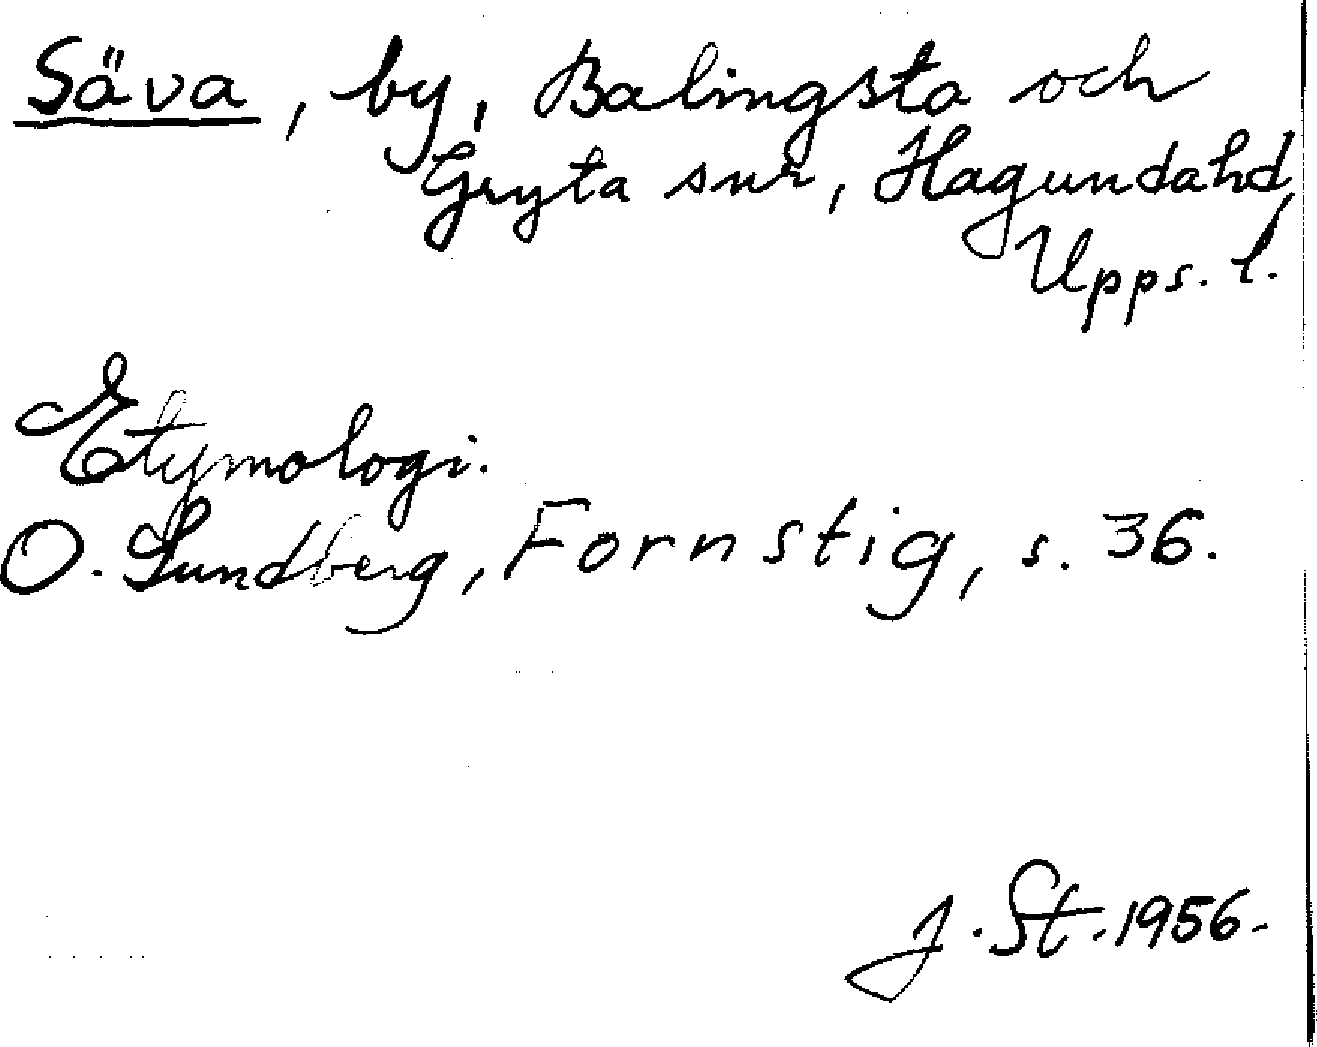 Säva, by, Balingsta och
Gryta snr, Hagundahd,
Upps. l.
Etymologi.
O. Lundberg, Fornstig, s. 36.
J. St. 1956.